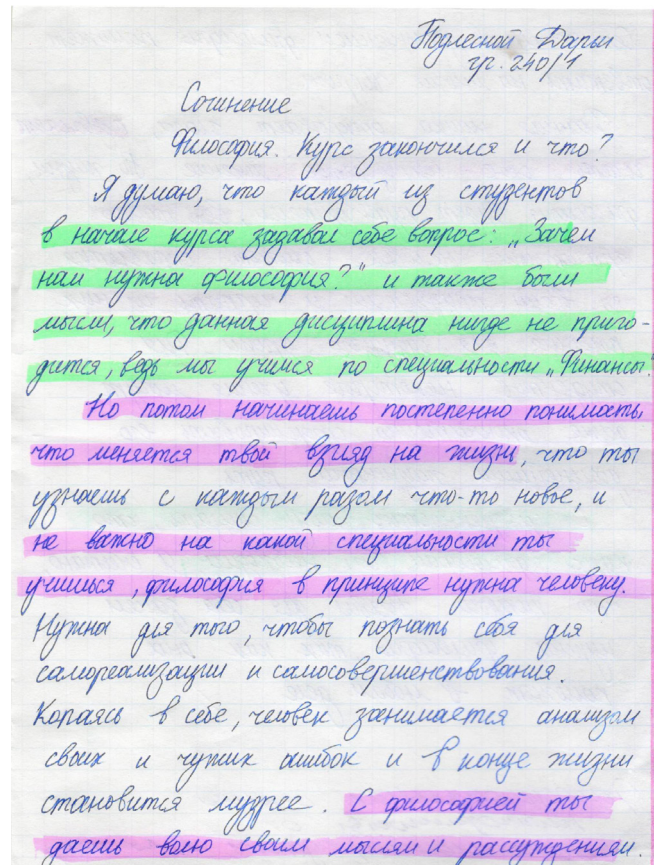 Подлесной Дарьи
гр. 240/1
Сочинение
Философия. Курс закончился и что?
Я думаю, что каждый из студентов
в начале курса задавал себе вопрос: „Зачем
нам нужна философия?" и также были
мысли, что данная дисциплина нигде не приго-
дится, ведь мы учимся по специальности „Финансы".
Но потом начинаешь постепенно понимать,
что меняется твой взгляд на жизнь, что ты
узнаешь с каждым разом что-то новое, и
не важно на какой специальности ты
учишься, философия в принципе нужна человеку.
Нужна для того, чтобы познать себя для
самореализации и самосовершенствования.
Копаясь в себе, человек занимается анализом
своих и чужих ошибок и в конце жизни
становится мудрее. С философией ты
даешь волю своим мыслям и рассуждениям.